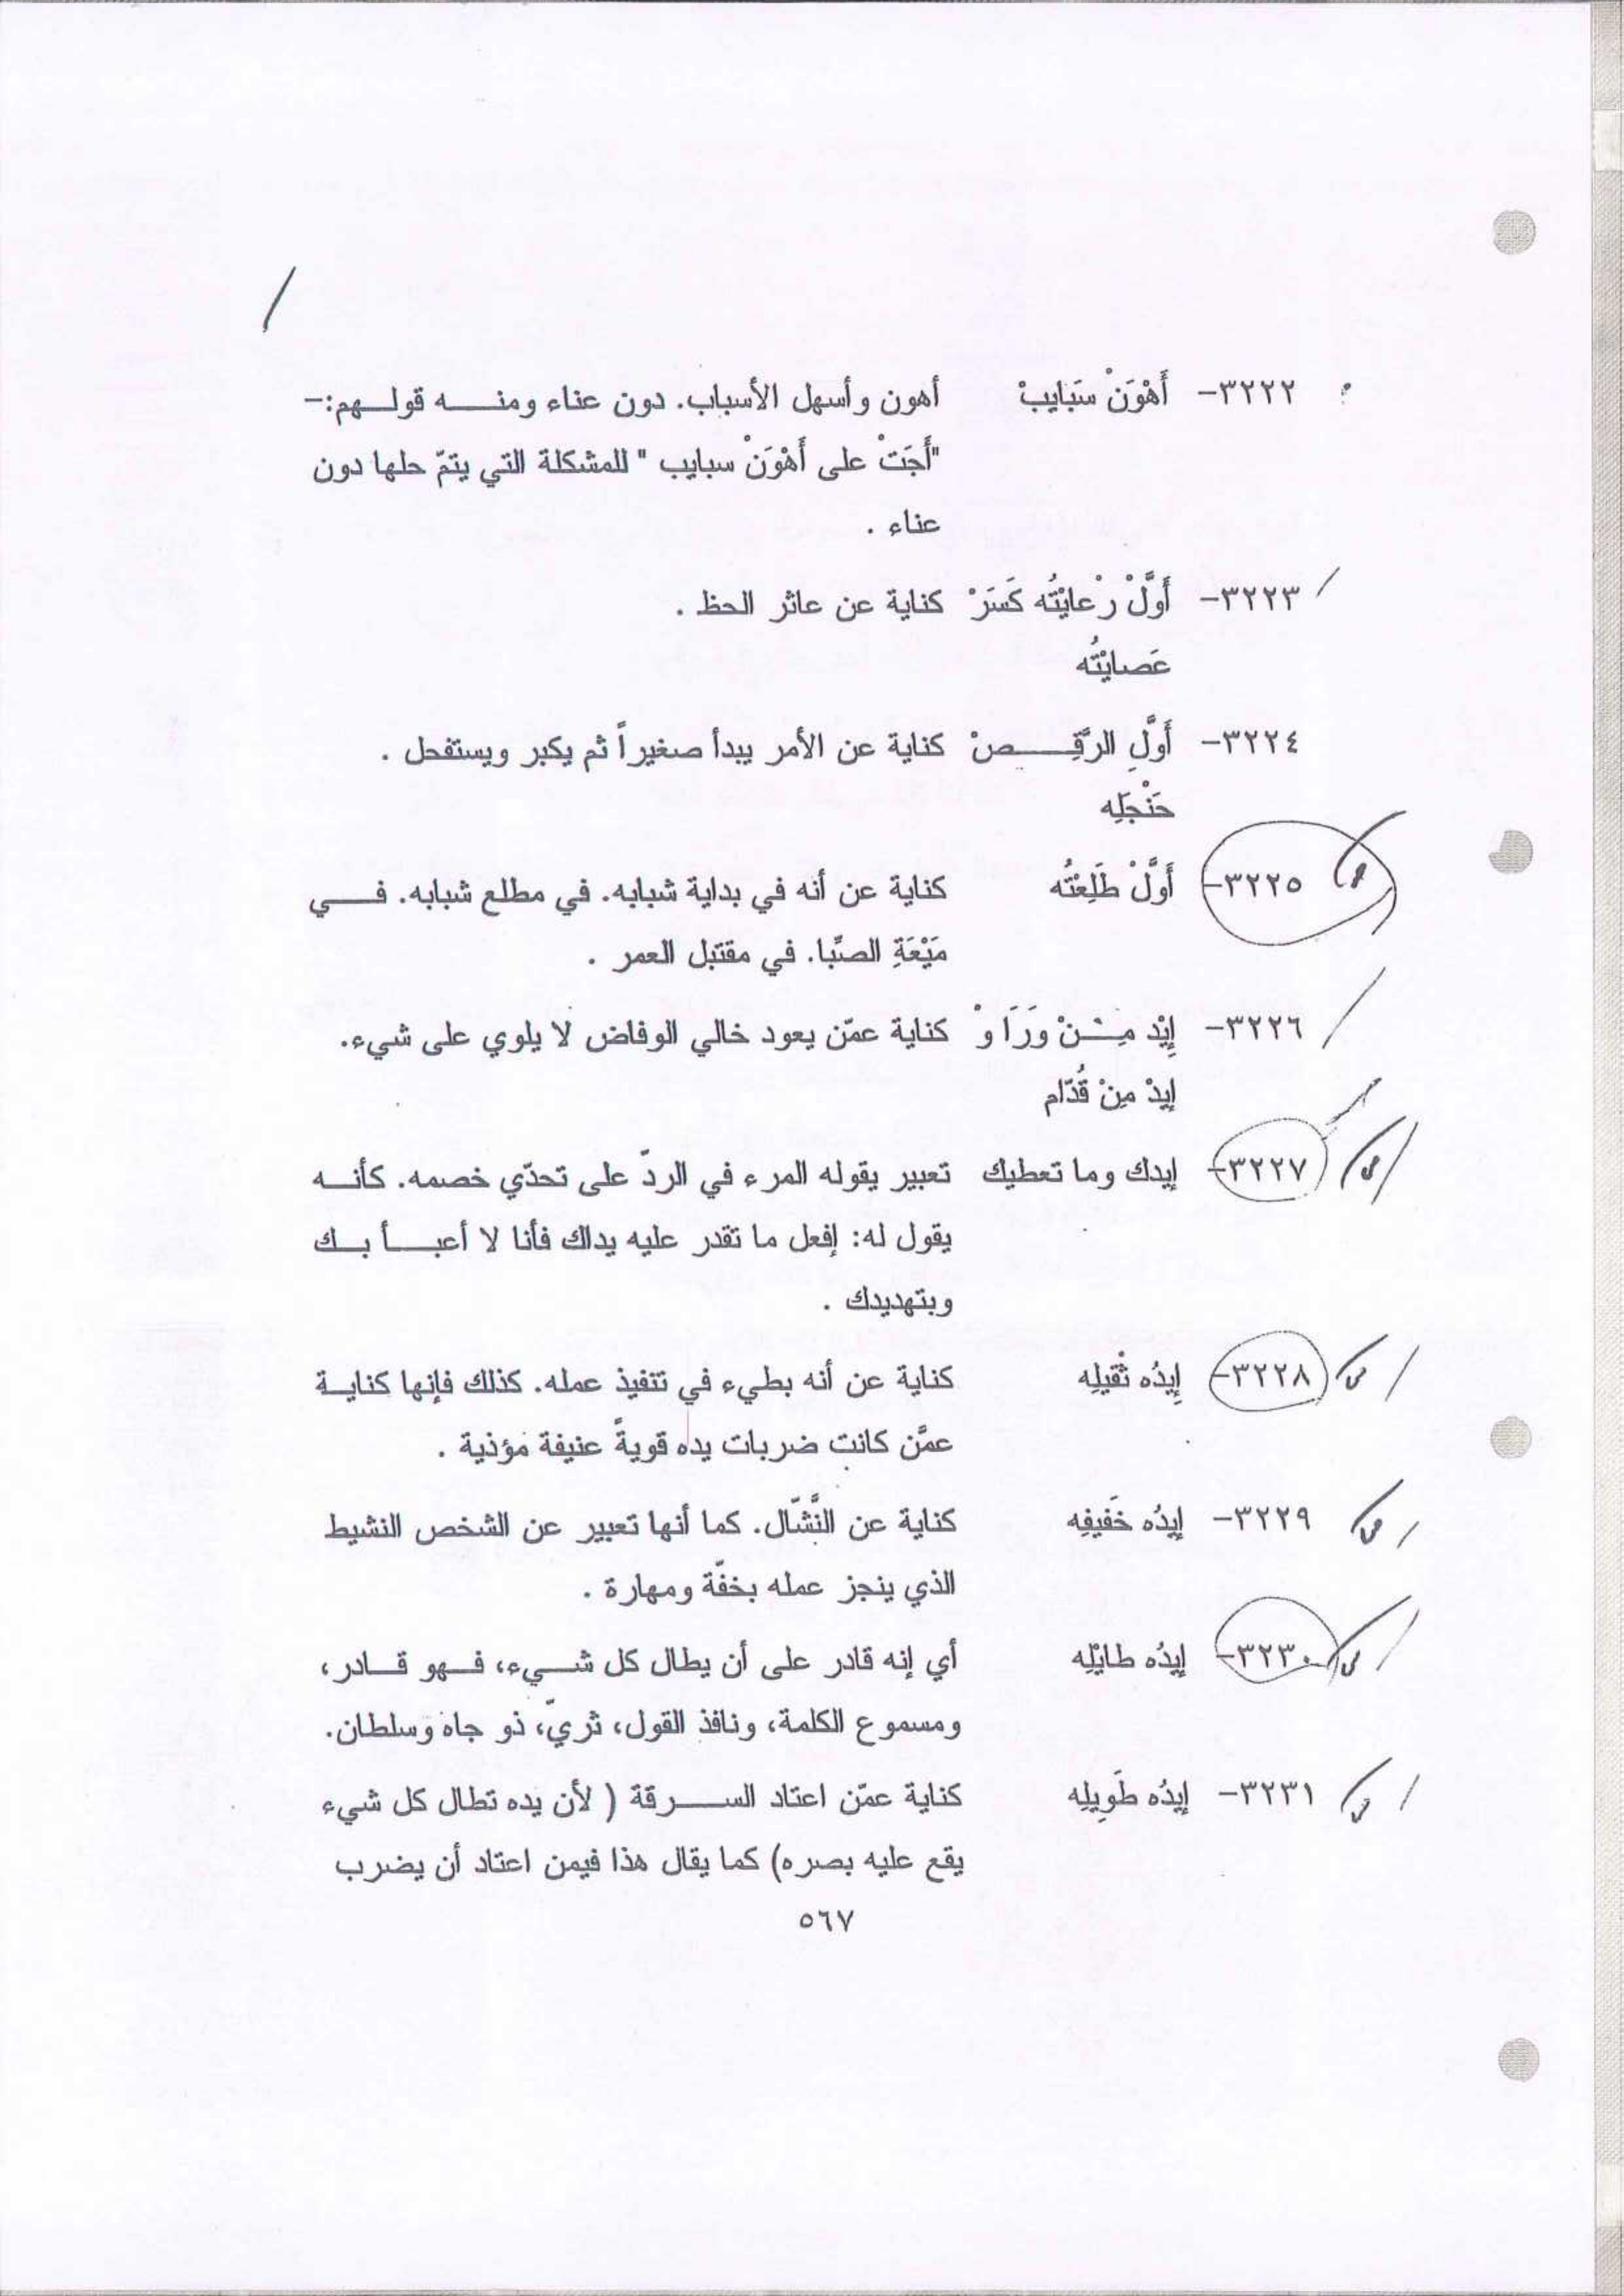 ٣٢٢٢- أَهْوَنْ سَبايبْ أهون وأسهل الأسباب. دون عناء ومنه قولهم:-
"أَجَتْ على أَهْوَنْ سبايب " للمشكلة التي يتمّ حلها دون
عناء .
٣٢٢٣- أَوَّلْ رْعايْتُه كَسَرْ كناية عن عاثر الحظ .
عَصايْتُه
٣٢٢٤- أَوَّلِ الرَّقِصْ كناية عن الأمر يبدأ صغيراً ثم يكبر ويستفحل .
حَنْجَلِه
٣٢٢٥- أَوَّلْ طَلِعْتُه كناية عن أنه في بداية شبابه. في مطلع شبابه. في
مَيْعَةِ الصِّبا. في مقتبل العمر .
٣٢٢٦- إِيْد مِنْ وَرَا وْ كناية عمّن يعود خالي الوفاض لا يلوي على شيء.
إيدْ مِنْ قُدّام
٣٢٢٧- إيدك وما تعطيك تعبير يقوله المرء في الردّ على تحدّي خصمه. كأنه
يقول له: إفعل ما تقدر عليه يداك فأنا لا أعبأ بك
وبتهديدك .
٣٢٢٨- إِيدُه ثْقيلِه كناية عن أنه بطيء في تنفيذ عمله. كذلك فإنها كناية
عمَّن كانت ضربات يده قويةً عنيفة مؤذية .
٣٢٢٩- إيدُه خَفيفِه كناية عن النَّشّال. كما أنها تعبير عن الشخص النشيط
الذي ينجز عمله بخفّة ومهارة .
٣٢٣٠- إيدُه طايْلِه أي إنه قادر على أن يطال كل شيء، فهو قادر،
ومسموع الكلمة، ونافذ القول، ثريّ، ذو جاه وسلطان.
٣٢٣١- إيدُه طَويلِه كناية عمّن اعتاد السرقة ( لأن يده تطال كل شيء
يقع عليه بصره) كما يقال هذا فيمن اعتاد أن يضرب
٥٦٧